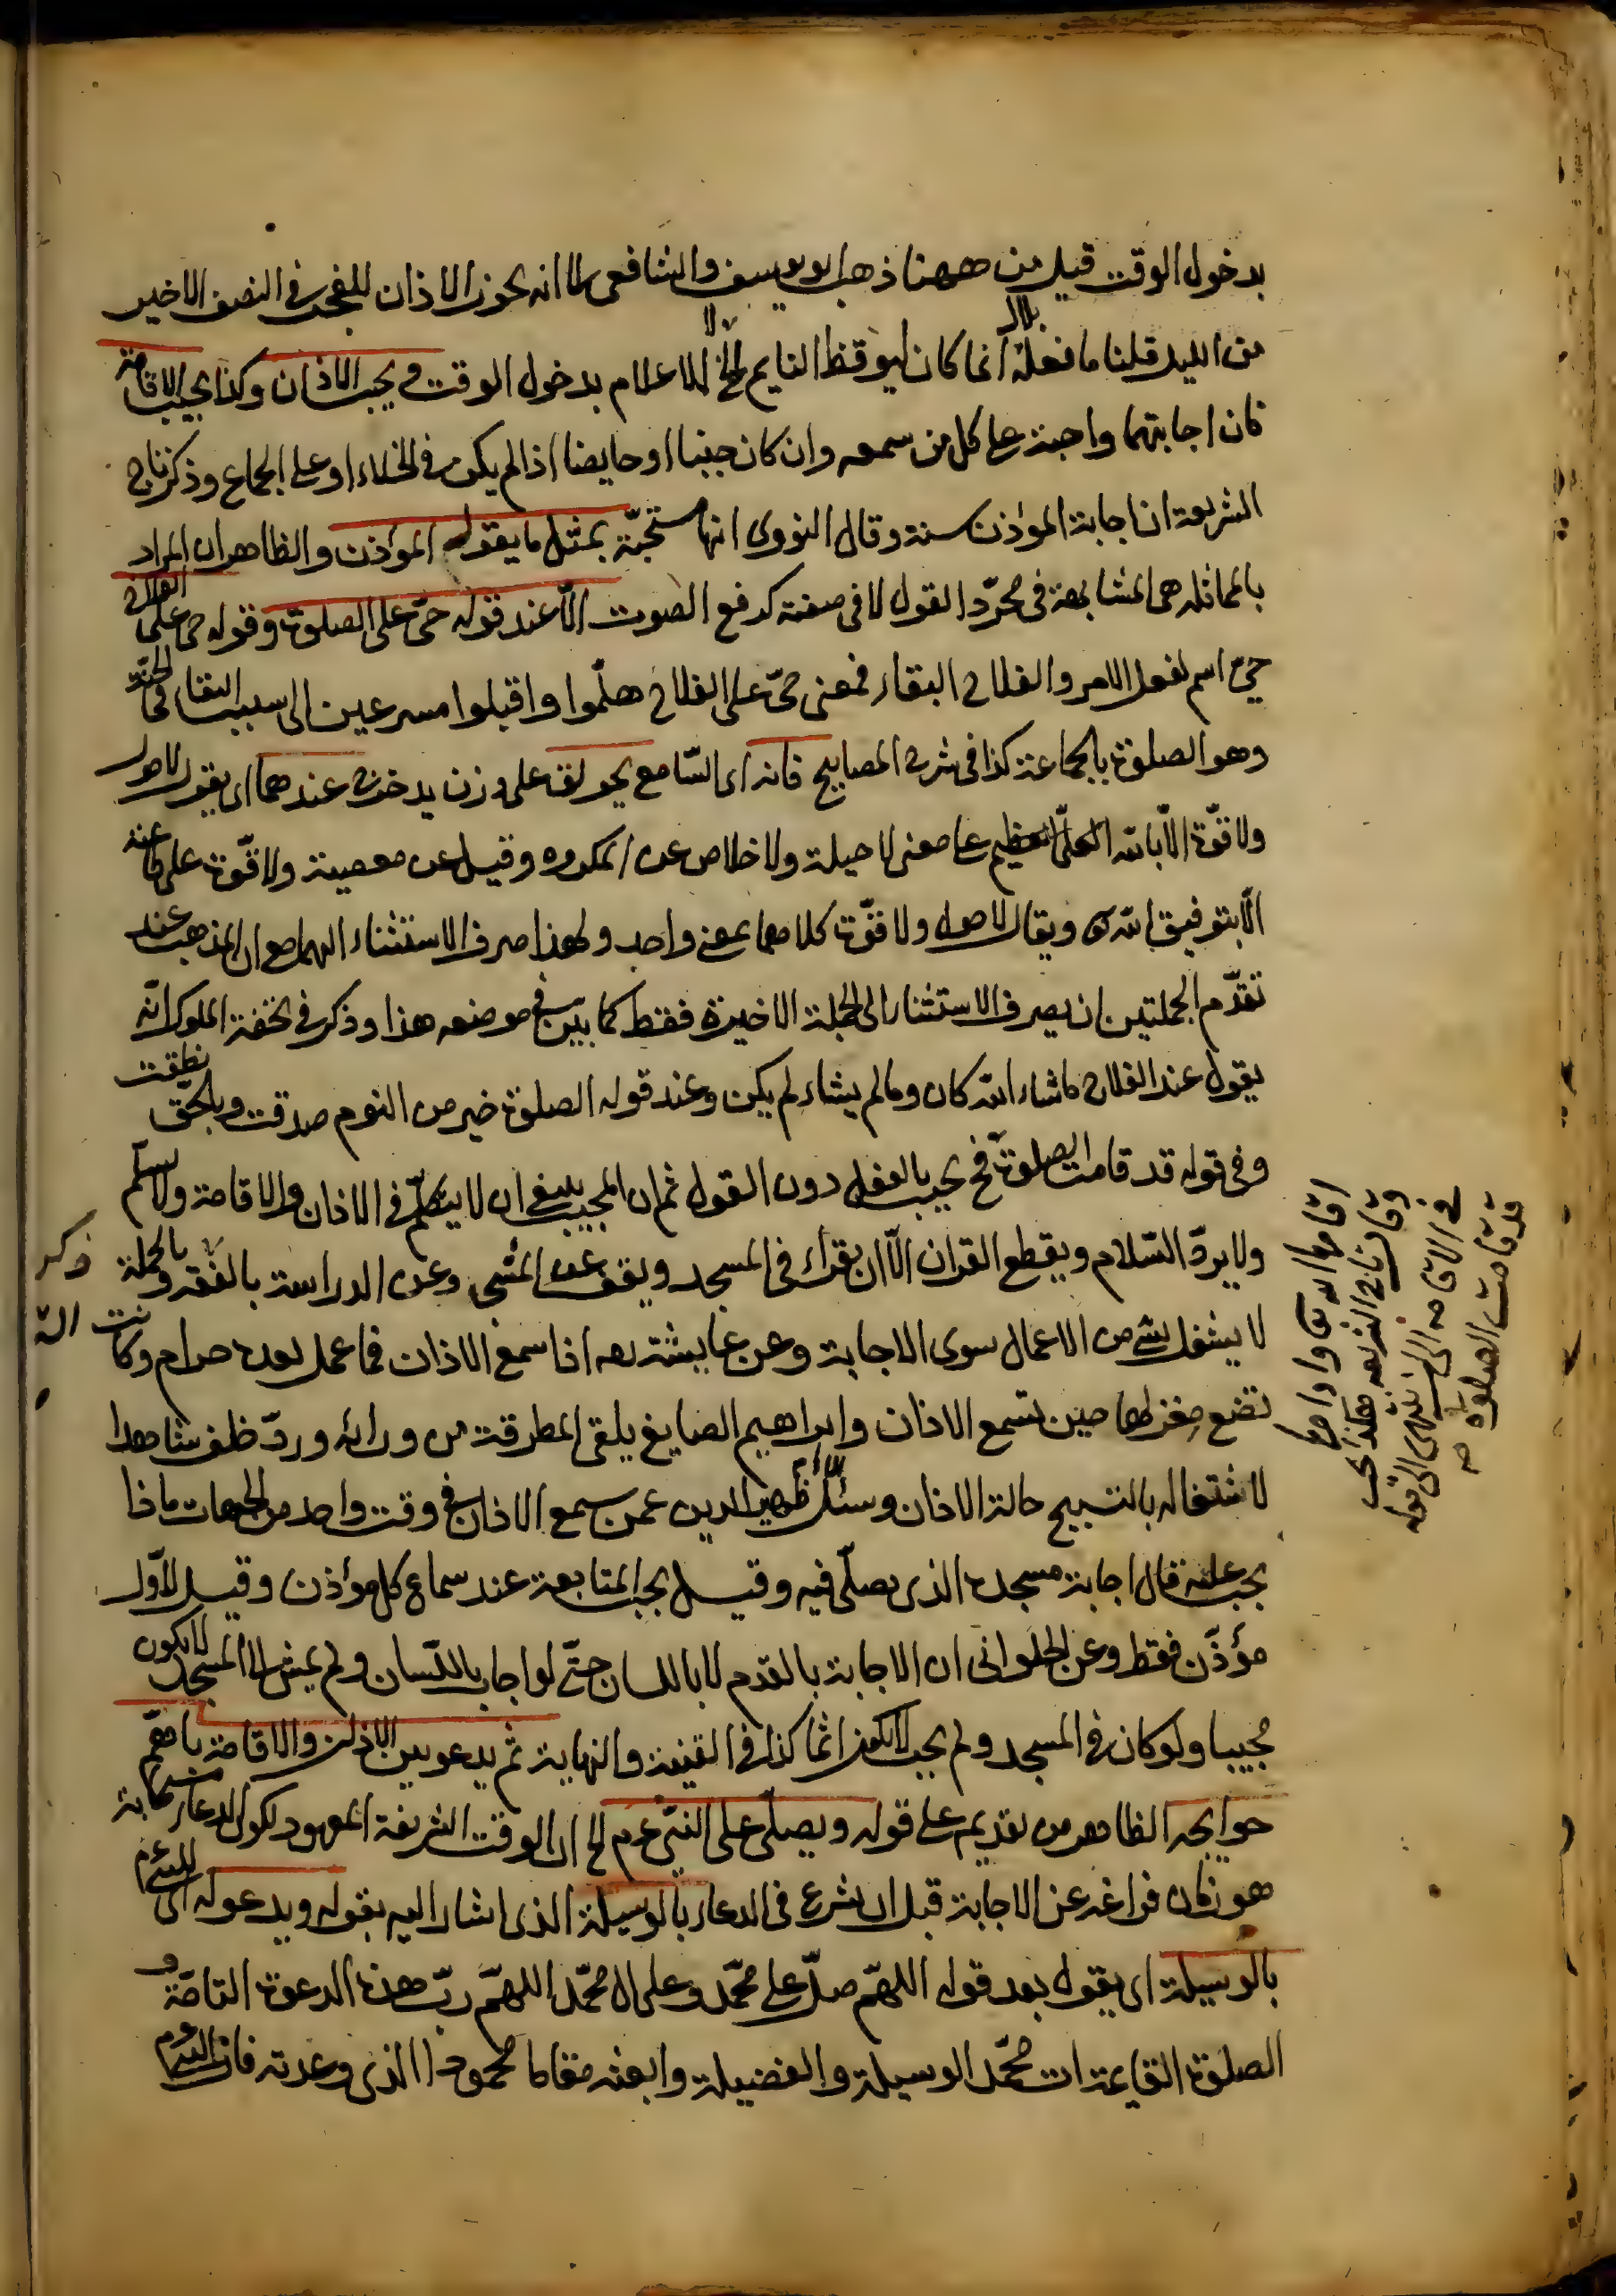 بدخول الوقت قيل من ههنا ذهب ابو يوسف والشافعى الا انه يجوز الاذان للفجر فى النصف الاخير
من الليل قلنا ما فعله بلال انما كان ليوقظ النايم الخ لا للاعلام بدخول الوقت ويجيب الاذان وكذا يجيب الاقامة
فان اجابتهما واجبة على كل من سمعه وان كان جنبا او حايضا اذا لم يكن فى الخلاء او على الجماع وذكر تاج
الشريعة ان اجابة المؤذن سنة وقال النووى انها مستحبّة بمثل ما يقوله المؤذن والظاهر ان المراد
بالمماثله هى المشابهة فى مجرّد القول لا فى صفته كرفع الصوت الّا عند قوله حىّ على الصلوة وقوله حى على الفلاح
حىّ اسم لفعل الامر والفلاح البقاء فمعنى حىّ على الفلاح هلمّوا واقبلوا مسرعين الى سبب البقاء فى الجنّة
وهو الصلوة بالجماعة كذا فى شرح المصابيح فانه اى السّامع يحولق على وزن يدحرج عندهما اى يقول لا حول
ولا قوّة الّا بالله العلىّ العظيم على معنى لا حيلة ولا خلاص عن المكروه وقيل عن معصية ولا قوّة على طاعته
الّا بتوفيق الله ويقال لا حول ولا قوّة كلاهما بمعنى واحد ولهذا صرف الاستثناء اليهما مع ان المذهب عند
تقدّم الجملتين ان يصرف الاستثناء الى الجملة الاخيرة فقط كما بين فى موضعه هذا وذكر فى تحفة الملوك انّه
يقول عند الفلاح ما شاء الله كان وما لم يشاء لم يكن وعند قوله الصلوة خير من النوم صدقت وبالحقّ نطقت
وفى قوله قد قامت الصلوة فح يجيب بالفعل دون القول ثم ان المجيب ينبغى ان لا يتكلّم فى الاذان والاقامة ولا يسلّم
ولا يردّ السّلام ويقطع القران الّا ان يقرأ فى المسجد ويقف عن المشى وعن الدراسة بالفقه وبالجملة
لا يشغل بشئ من الاعمال سوى الاجابة وعن عايشة رضه اذا سمع الاذان فما عمل بعده حرام وكانت
تضع مغزلها حين تسمع الاذان وابراهيم الصايغ يلقى المطرقة من ورائه وردّ خلف شاهدا
لاشتغاله بالتسبيح حالة الاذان وسئل ظهير الدين عمن سمع الاذان فى وقت واحد من الجهات ماذا
يجب عليه قال اجابة مسجده الذى يصلّى فيه وقيل يجب المتابعة عند سماع كل مؤاذن وقيل لاوّل
مؤذّن فقط وعن الحلوانى ان الاجابة بالقدم لا باللسان حتّى لو اجاب باللّسان ولم يمش الى المسجد لا يكون
مجيبا ولو كان فى المسجد ولم يجب لا يكون اثما كذا فى القنية والنهاية ثم يدعو بين الاذان والاقامة باهمّ
حوايجه الظاهر من تقديمه على قوله ويصلّى على النبىّ عم الخ ان الوقت الشريفة المعهود لكون الدعاء مستجابة
هو زمان فراغه عن الاجابة قبل ان يشرع فى الدعاء بالوسيلة الذى اشار اليه بقوله ويدعو له اى للنبى عم
بالوسيلة اى يقول بعد قوله اللهمّ صلّ على محمّد وعلى ال محمّد اللهمّ ربّ هذه الدعوة التامّة و
الصلوة القايمة ات محمّد الوسيلة والفضيلة وابعثه مقاما محموداا الذى وعدته فان
اقامها الله تعالى وادامها
وقال تاج الشريعة هكذا يجب
فى الاقامه الى ان ينتهى الى قوله
قد قامت الصلوة صه
ذكر